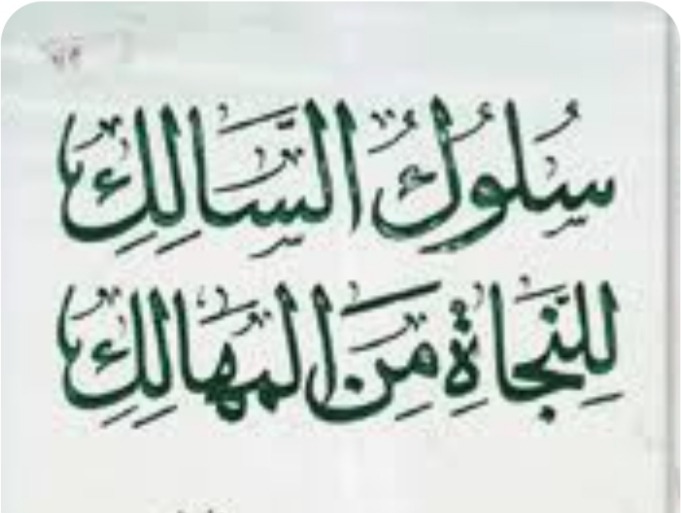 سُلُوكُ السَّالِكِ
لِلنَّجَاةِ مِنَ الْمَهَالِكِ